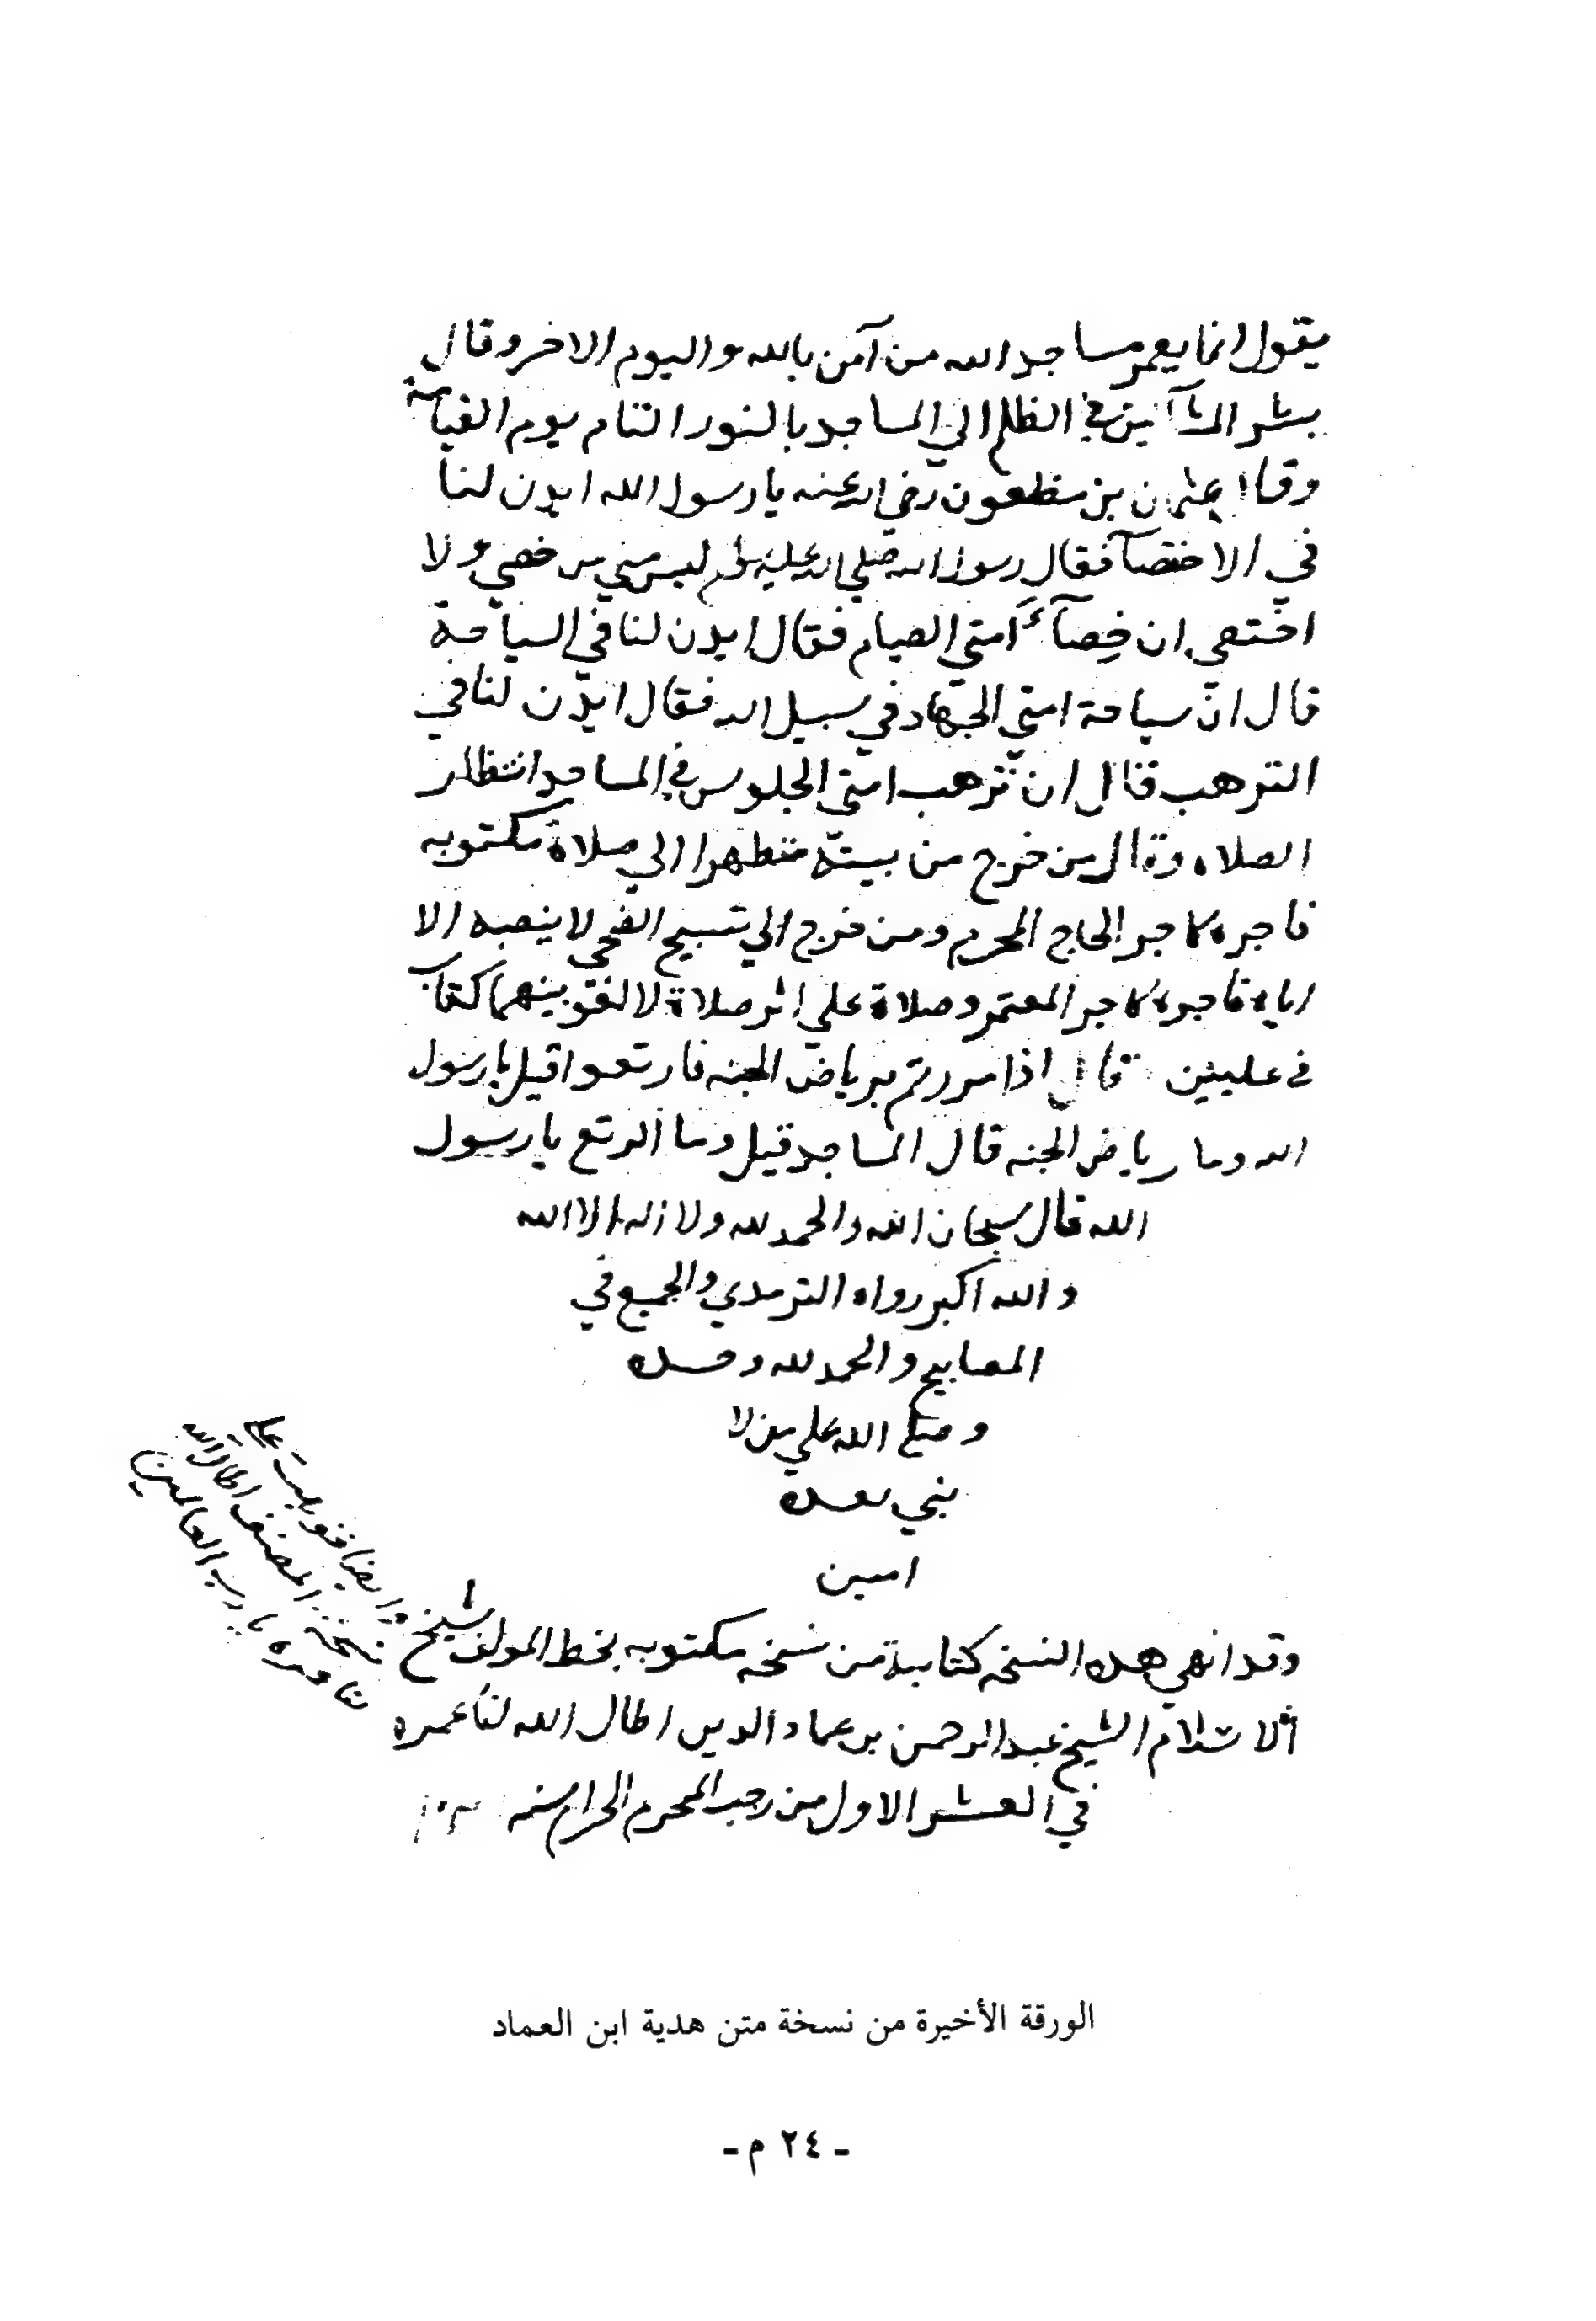 يقول انما يعمر مساجد الله من آمن بالله واليوم الاخر وقال
بشر المشآئين في الظلم الي المساجد بالنور التام يوم القيامة
وقال عثمان بن مظعون رضي الله عنه يا رسول الله ايدن لنا
في الاختصآ فقال رسول الله صلي الله عليه وسلم ليس مني من خصي ولا
اختصي ان خصآء امتي الصيام فقال ايدن لنا في السياحة
قال ان سياحة امتي الجهاد في سبيل الله فقال ايدن لنا في
الترهب قال ان ترهب امتي الجلوس في المساجد انتظار
الصلاه وقال من خرج من بيته متطهرا الي صلاة مكتوبه
فاجره كاجر الحاج المحرم ومن خرج الي تسبيح الضحي لا ينصبه الا
اياه فاجره كاجر المعتمر وصلاة علي اثر صلاة لا لغو بينهما كتاب
في عليين قال اذا مررتم برياض الجنه فارتعوا قيل يا رسول
الله وما رياض الجنه قال المساجد قيل وما الرتع يا رسول
الله قال سبحان الله والحمد لله ولا اله الا الله
والله اكبر رواه الترمدي والجميع في
المصابيح والحمد لله وحده
وصلي الله علي من لا
نبي بعده
امين
وقد انهي هده النسخه كتابية من نسخه مكتوبه بخط المولف شيخ
الاسلام الشيخ عبد الرحمن بن عماد الدين اطال الله لنا عمره
في العشر الاول من رجب المحرم الحرام سنه
وايضا قوبلت علي
نسخة المصنف اطال الله
لنا عمره يا رب العالمين
الورقة الأخيرة من نسخة متن هدية ابن العماد
- ٢٤ م -